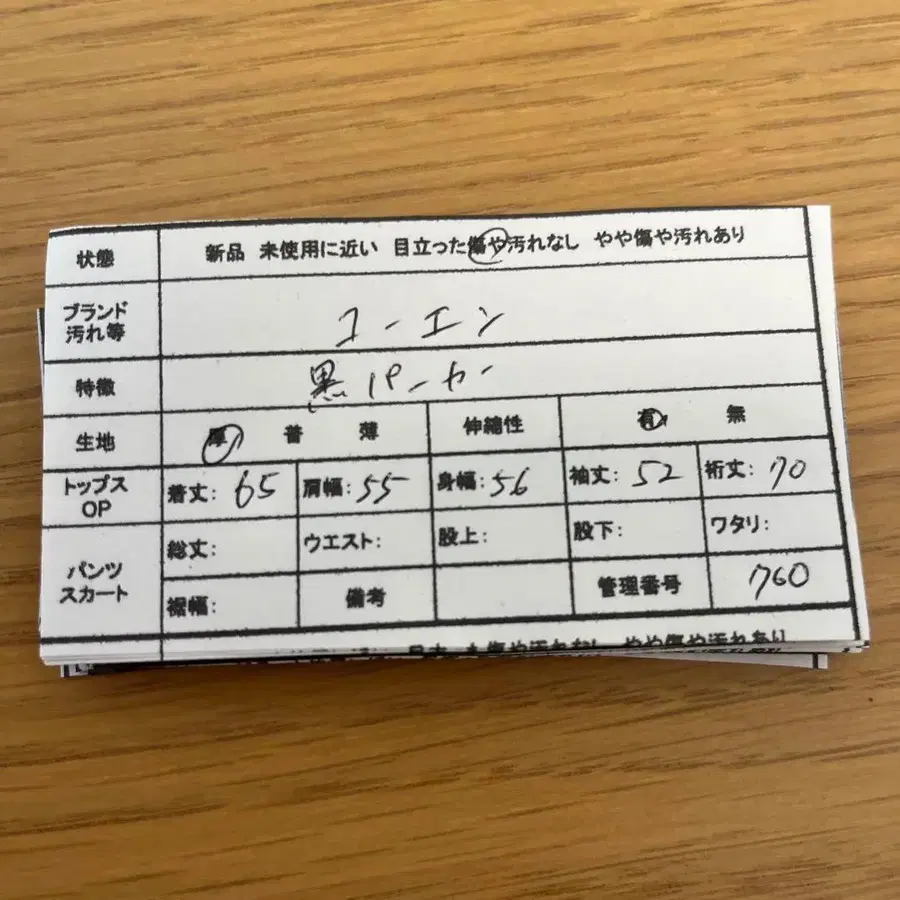 状態 新品 未使用に近い 目立った傷や汚れなし やや傷や汚れあり
ブランド 汚れ等 コーエン
特徴 黒パーカー
生地 厚 普 薄 伸縮性 有 無
トップス OP 着丈: 65 肩幅: 55 身幅: 56 袖丈: 52 裄丈: 70
パンツ スカート 総丈: ウエスト: 股上: 股下: ワタリ:
裾幅: 備考 管理番号 760
傷や汚れなし やや傷や汚れあり